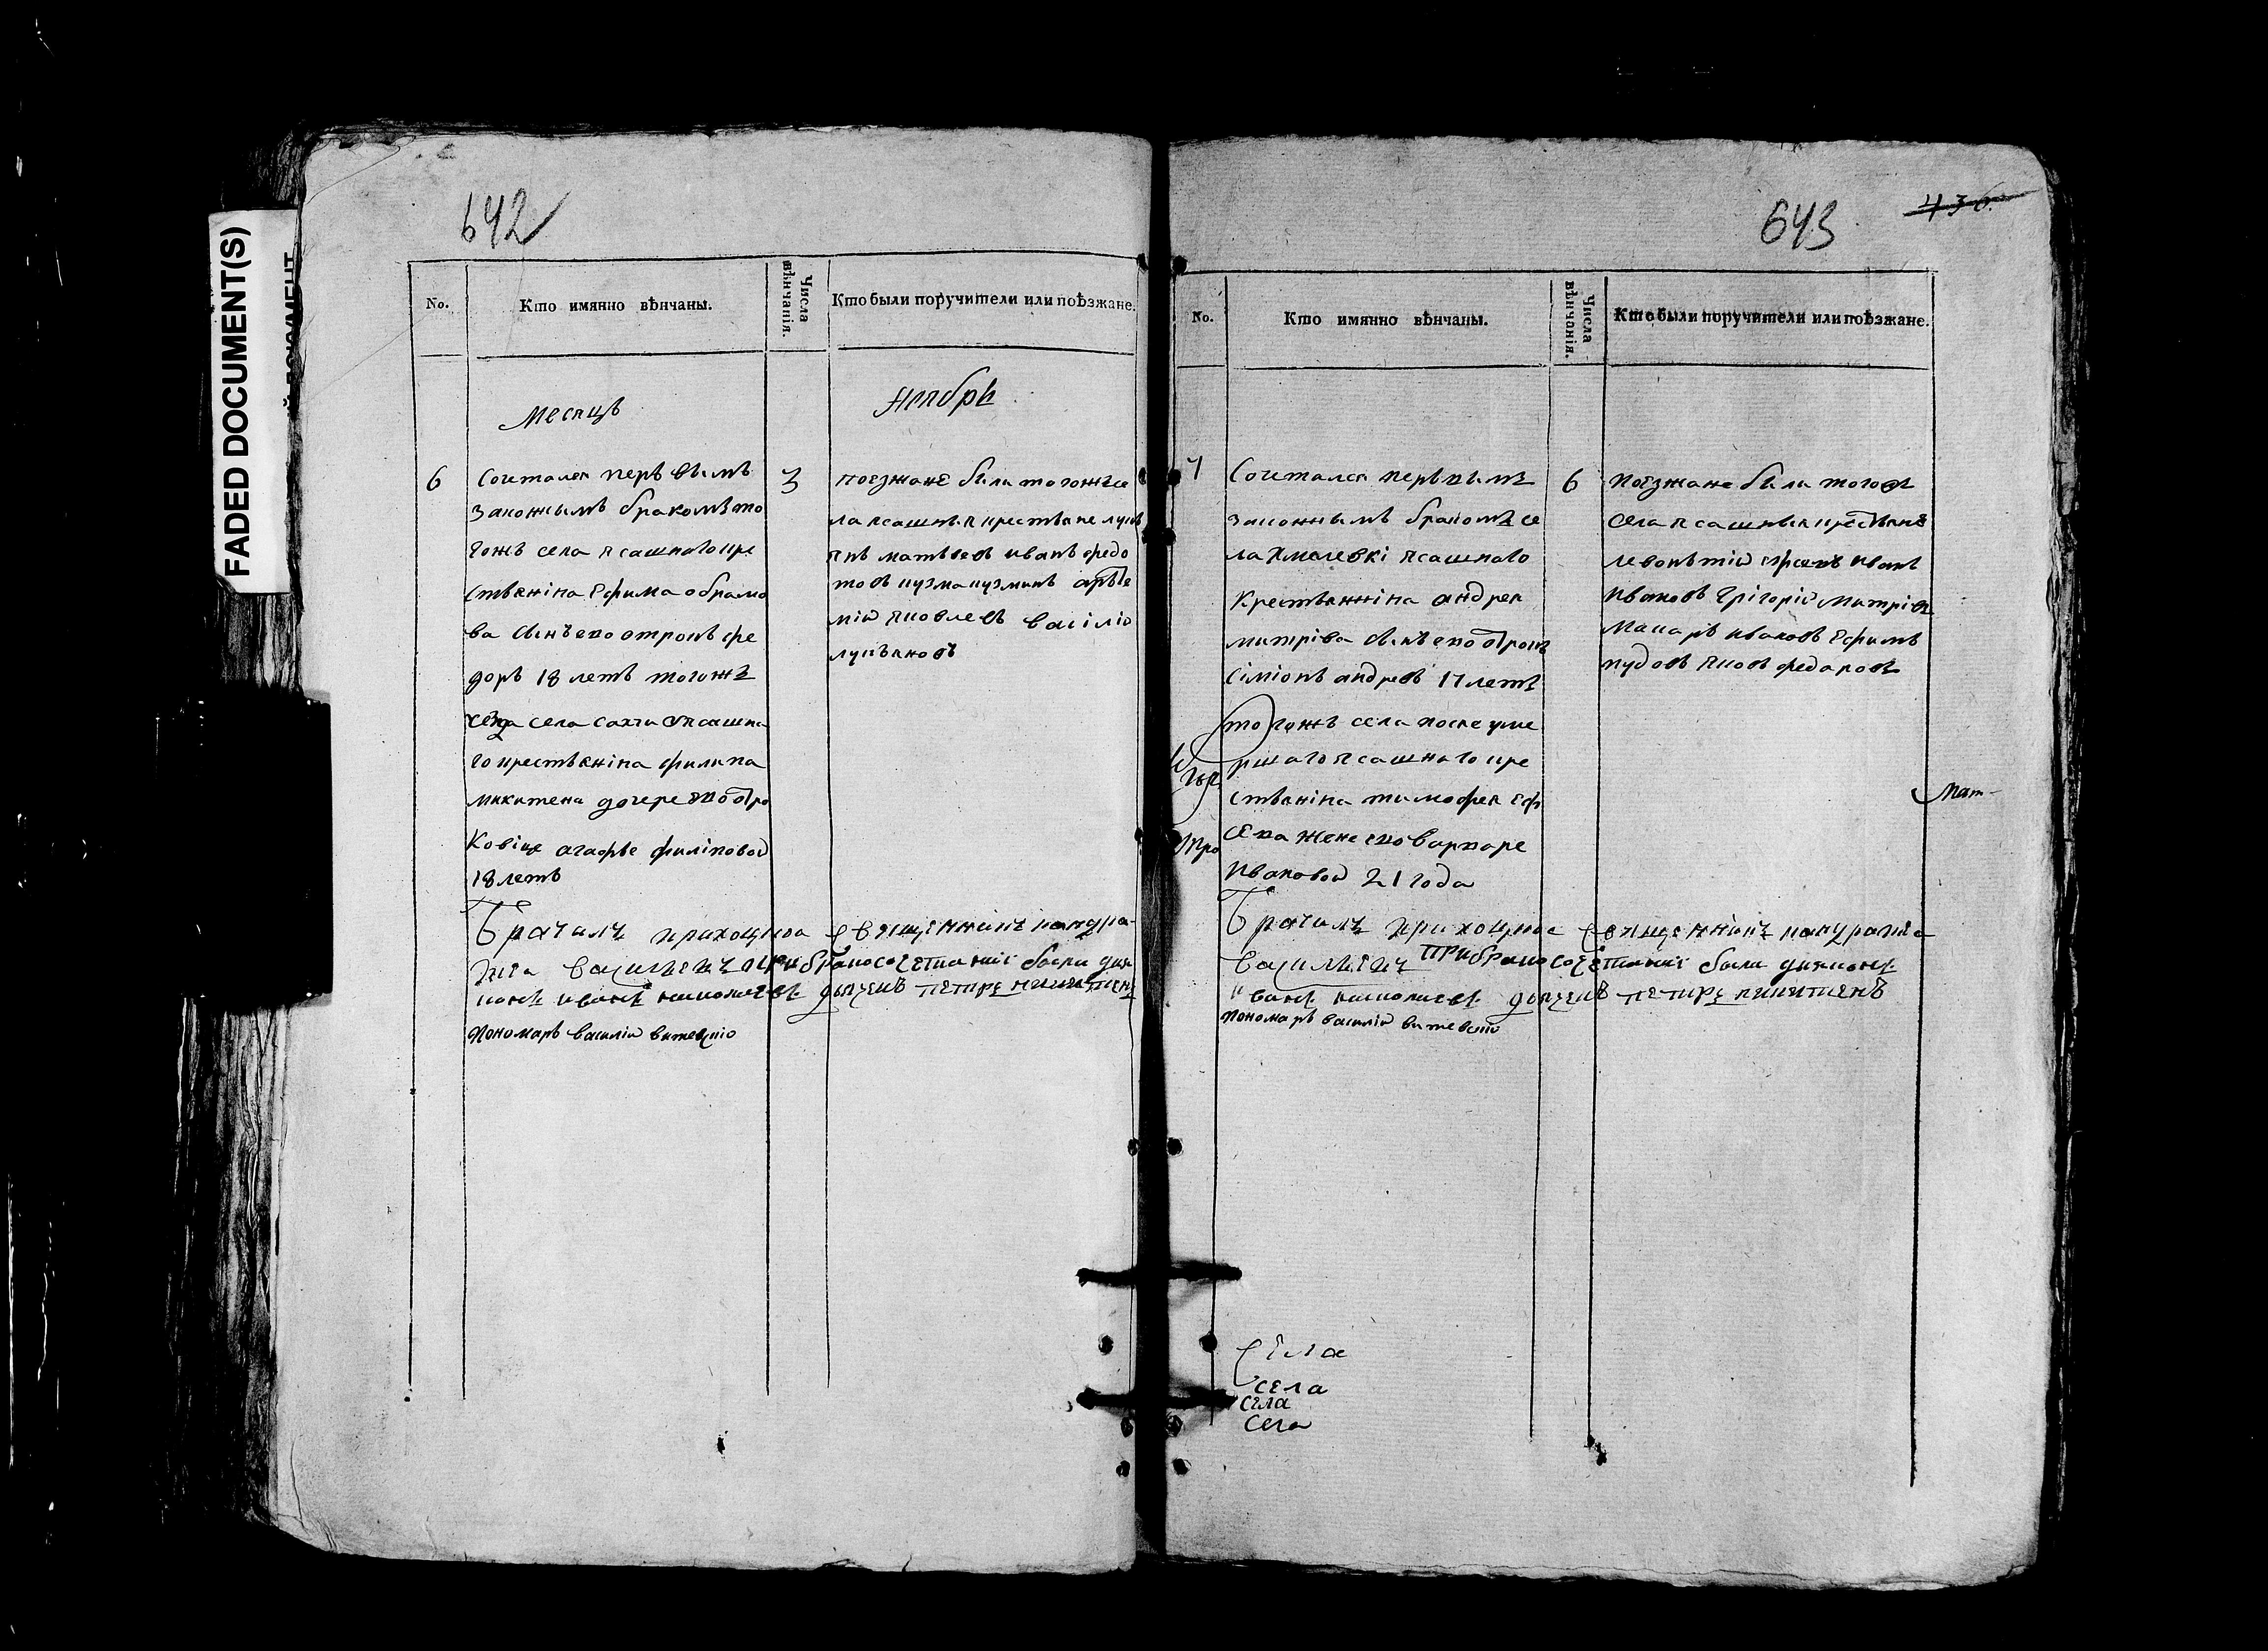 FADED DOCUMENT(S)
642
No.
Кто имянно вѣнчаны.
Числа вѣнчанія.
Кто были поручители или поѣзжане.
Месяцъ
Ноябрь
6
Сочетался перъвымъ
законнымъ бракомъ то
гожъ села ясашного кре
стьянина Ефима абрамо
ва сынъ ево отрокъ фе
доръ 18 летъ тогожъ
села
го крестьянина филипа
микитена дочере ево отро
ковице агафье филиповой
18 летъ
3
поезжане были тогожъ се
ла ясашныя крестьяне лукь
янъ матьвеевъ иванъ федо
товъ кузма кузминъ артъе
мий яковлевъ василий
лукьяновъ
Брачилъ приходцкой священникъ
Васильевъ при бракосочетании были дия
конъ иванъ николаевъ дьячекъ петръ никитенъ
пономаръ василий
643
436
No.
Кто имянно вѣнчаны.
Числа вѣнчанія.
Кто были поручители или поѣзжане.
7
Сочетался перъвымъ
законнымъ бракомъ се
ла Хмелевки ясашного
крестьянина андрея
митриева сынъ ево отрокъ
Симионъ андреевъ 17 летъ
тогожъ села после уме
ршаго ясашнаго кре
стьянина тимофея
жене ево варваре
Ивановой 21 года
6
поезжане были тогожъ
села ясашныя крестьяне
леонътий иванъ
ивановъ Григорий митриевъ
Макаръ ивановъ Ефимъ
яковъ федоровъ
Брачилъ приходцкой священникъ
Васильевъ при бракосочетании были дияконъ
иванъ николаевъ дьячекъ петръ никитенъ
пономаръ василий
села
села
села
села